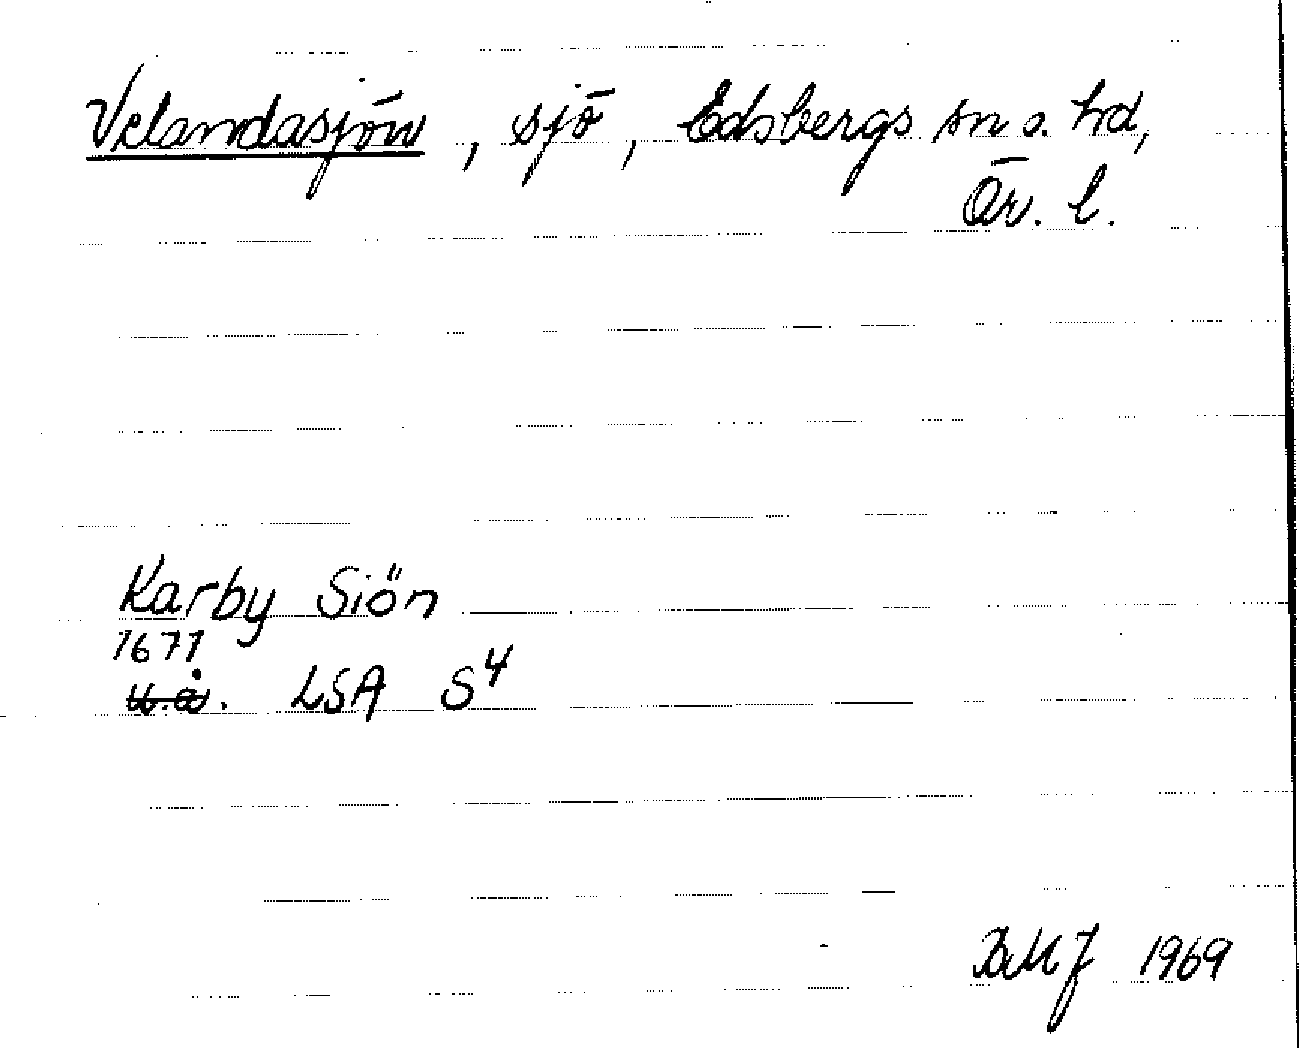 Velandasjön, sjö, Edsbergs sn o. hd,
Ör. l.
Karby Siön
1671
u.å. LSA S4
BMJ 1969